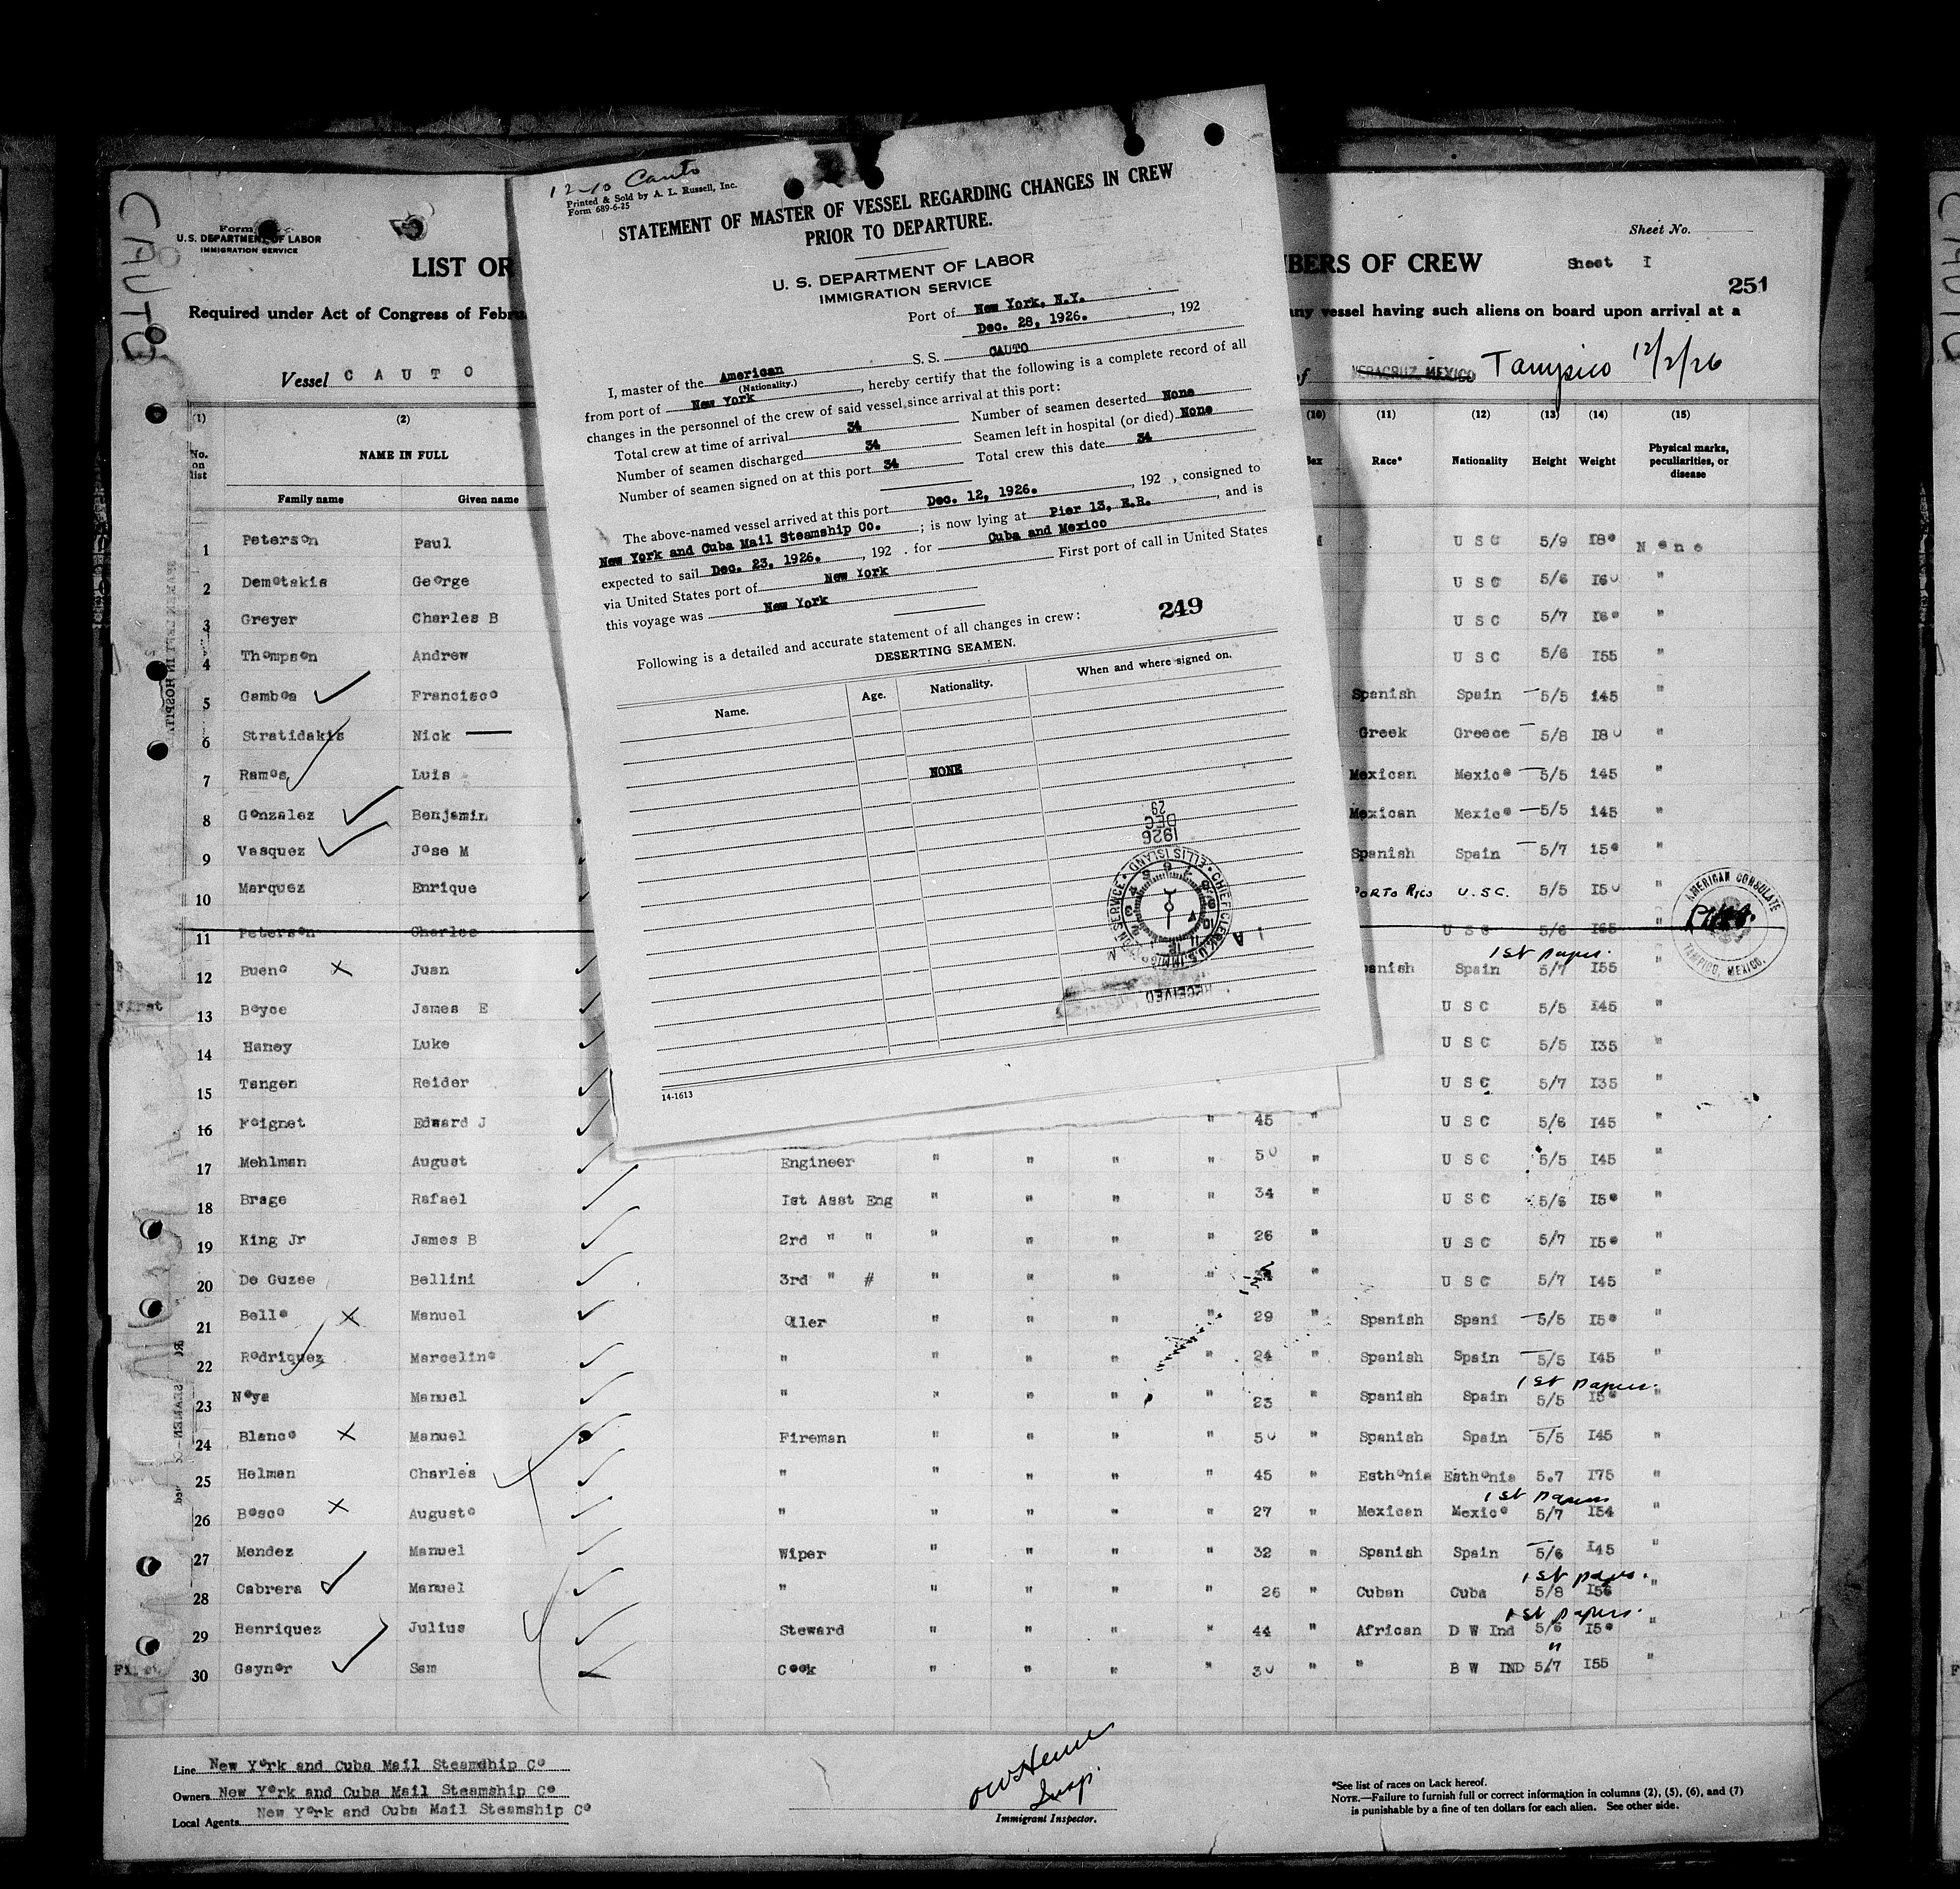 CAUTO
Form
U.S. DEPARTMENT OF LABOR
IMMIGRATION SERVICE
LIST OR
Required under Act of Congress of Febru
Vessel C A U T O
(1) (2)
No. on list
NAME IN FULL
Family name Given name
12-10 Cauto
Printed & Sold by A. L. Russell, Inc.
Form 689-6-25
STATEMENT OF MASTER OF VESSEL REGARDING CHANGES IN CREW
PRIOR TO DEPARTURE.
U. S. DEPARTMENT OF LABOR
IMMIGRATION SERVICE
Port of New York, N.Y.
Dec. 28, 1926. , 192
I, master of the American S. S. CAUTO
(Nationality.)
from port of New York , hereby certify that the following is a complete record of all
changes in the personnel of the crew of said vessel since arrival at this port:
Total crew at time of arrival 34 Number of seamen deserted None
Number of seamen discharged 34 Seamen left in hospital (or died) None
Number of seamen signed on at this port 34 Total crew this date 34
The above-named vessel arrived at this port Dec. 12, 1926. , 192 , consigned to
New York and Cuba Mail Steamship Co. ; is now lying at Pier 13, E.R. , and is
expected to sail Dec. 23, 1926. , 192 . for Cuba and Mexico
via United States port of New York First port of call in United States
this voyage was New York
249
Following is a detailed and accurate statement of all changes in crew:
DESERTING SEAMEN.
Name. Age. Nationality. When and where signed on.
NONE
DEC 29 1926
CHIEF CLERK U.S. IMMIGRATION SERVICE ELLIS ISLAND
RECEIVED
14-1613
Sheet No.
BERS OF CREW Sheet I
251
any vessel having such aliens on board upon arrival at a
of VERACRUZ MEXICO Tampico 12/2/26
(10) (11) (12) (13) (14) (15)
Sex Race* Nationality Height Weight Physical marks, peculiarities, or disease
1 Peterson Paul M U S C 5/9 180 None
2 Demotakis George U S C 5/6 160 "
3 Greyer Charles B U S C 5/7 160 "
4 Thompson Andrew U S C 5/6 I55 "
5 Gamboa Francisco Spanish Spain 5/5 145 "
6 Stratidakis Nick Greek Greece 5/8 I80 "
7 Ramos Luis Mexican Mexico 5/5 145 "
8 Gonzalez Benjamin Mexican Mexico 5/5 145 "
9 Vasquez Jose M Spanish Spain 5/7 150 "
10 Marquez Enrique PORTO RICO U.S.C. 5/5 I50 "
11 Peterson Charles U S C 5/6 I65
AMERICAN CONSULATE
TAMPICO, MEXICO.
1st papers.
12 Bueno Juan anish Spain 5/7 I55 "
First
13 Boyce James E U S C 5/5 I45 "
14 Haney Luke U S C 5/5 I35 "
15 Tangen Reider U S C 5/7 I35 "
16 Foignet Edward J " 45 " U S C 5/6 I45 "
17 Mehlman August Engineer " " " " 50 " U S C 5/5 I45 "
18 Brage Rafael Ist Asst Eng " " " " 34 " U S C 5/6 I50 "
19 King Jr James B 2rd " " " " " " 26 " U S C 5/7 I50 "
20 De Guzee Bellini 3rd " # " " " " " U S C 5/7 I45 "
21 Bello Manuel Oiler " " " " 29 " Spanish Spani 5/5 I50 "
22 Rodriquez Marcelino " " " " " 24 " Spanish Spain 5/5 I45 "
1st papers.
23 Noya Manuel " " " " " 23 " Spanish Spain 5/5 I50 "
24 Blanco Manuel Fireman " " " " 50 " Spanish Spain 5/5 I45 "
25 Helman Charles " " " " " 45 " Esthonia Esthonia 5.7 I75 "
1st papers
26 Bosco Augusto " " " " " 27 " Mexican Mexico 5/7 I54 "
27 Mendez Manuel Wiper " " " " 32 " Spanish Spain 5/6 I45 "
1st papers.
28 Cabrera Manuel " " " " " 26 " Cuban Cuba 5/8 I56 "
1st papers.
29 Henriquez Julius Steward " " " " 44 " African D W Ind 5/6 I50 "
"
First
30 Gaynor Sam Cook " " " " 30 " " B W IND 5/7 I55 "
Line New York and Cuba Mail Steamdhip Co
Owners New York and Cuba Mail Steamship Co
Local Agents New York and Cuba Mail Steamship Co
Insp.
Immigrant Inspector.
*See list of races on back hereof.
NOTE.—Failure to furnish full or correct information in columns (2), (5), (6), and (7)
is punishable by a fine of ten dollars for each alien. See other side.